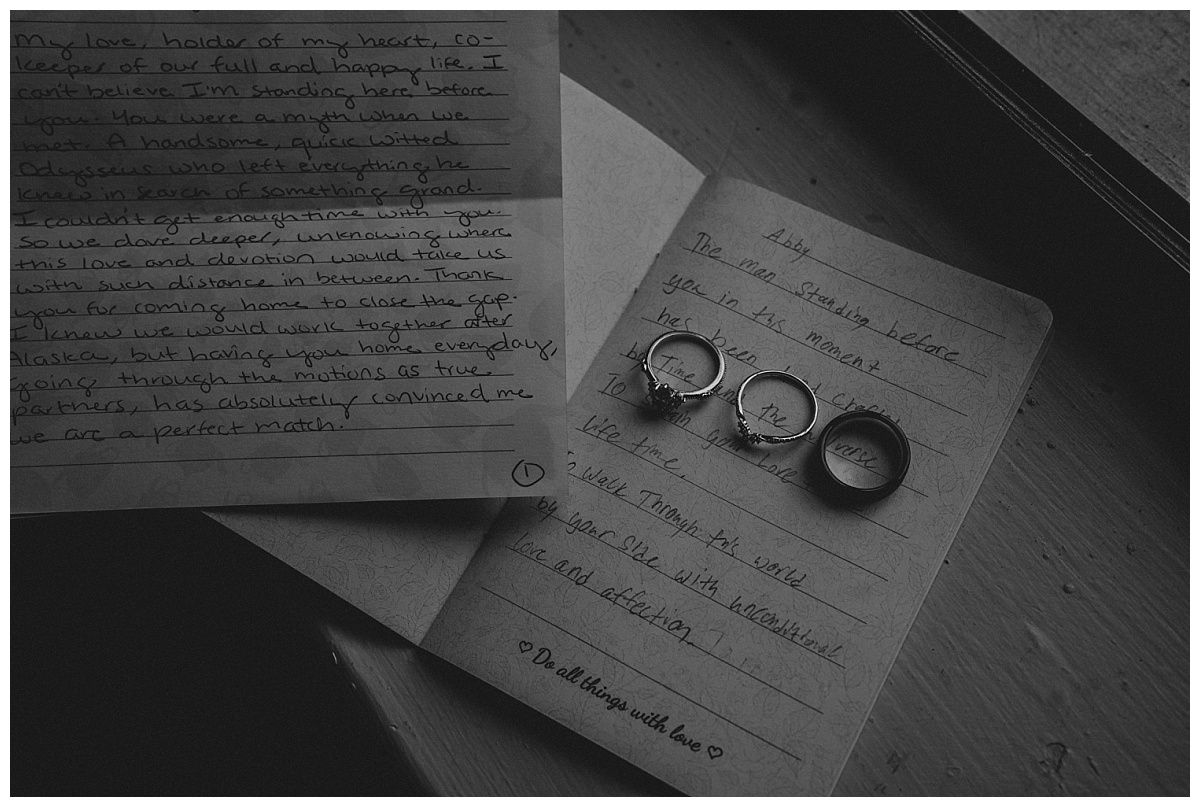 My love, holder of my heart, co-
keeper of our full and happy life. I
can't believe I'm standing here before
you. You were a myth when we
met. A handsome, quick witted
Odysseus who left everything he
knew in search of something grand.
I couldn't get enough time with you.
So we dove deeper, unknowing where
this love and devotion would take us
with such distance in between. Thank
you for coming home to close the gap.
I knew we would work together after
Alaska, but having you home everyday,
going through the motions as true
partners, has absolutely convinced me
we are a perfect match.
1
Abby
The man standing before
you in this moment
has been
by Time and the universe
To your Love
life time.
To walk Through this world
by your side with unconditional
love and affection.
♡ Do all things with love ♡